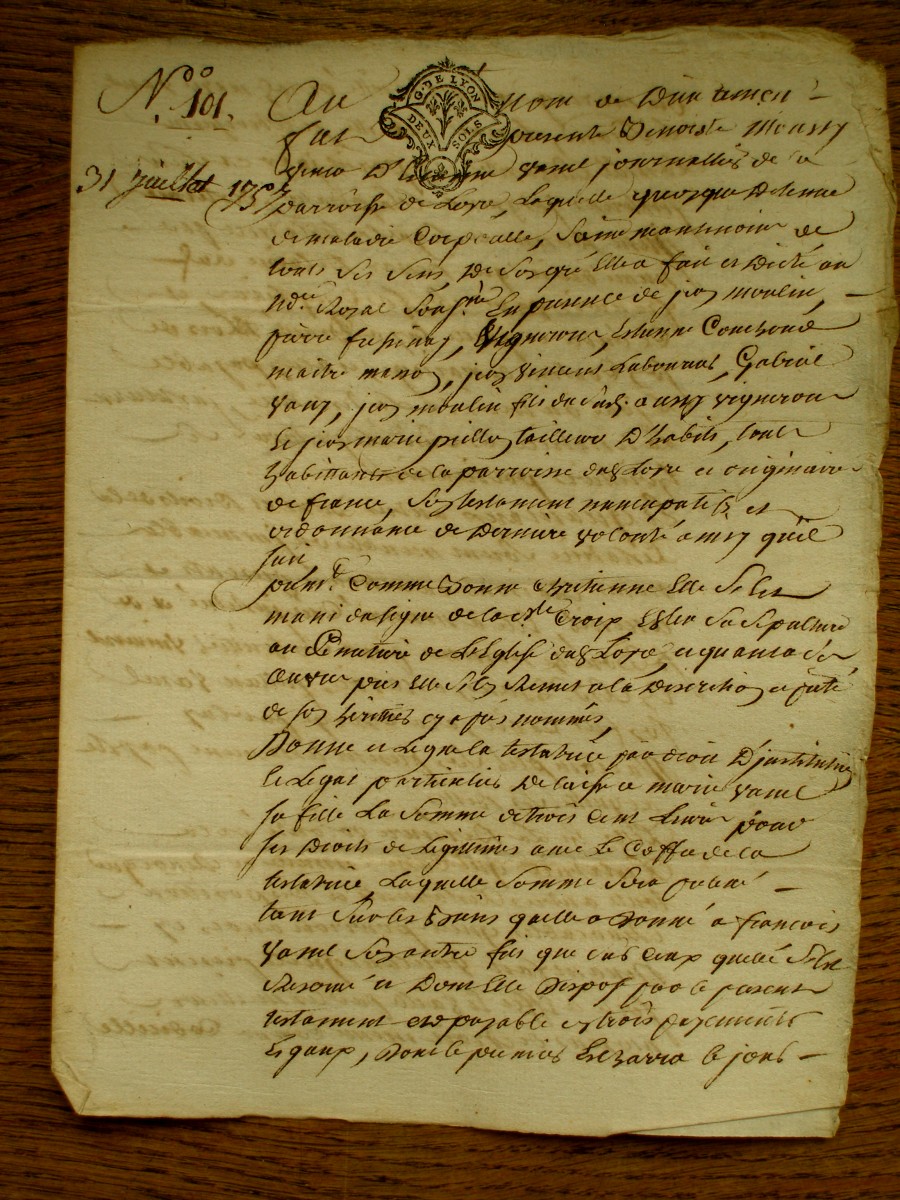 N.° 101.
31 juillet 1757
G. DE LYON
DEUX SOLS
Au nom de Dieu
fut presente Benoiste Moussy
Vanel journallier de
parroisse de Loyre, Laquelle quoyque detenue
de maladie Corporelle, saine memoire de
touts ses sens, De son gré Elle a fait et Dicté au
n.re Royal Sousg.né En presence de jean moulin,
pierre, Vignerons, Estienne
maitre masson, jean Vincent Laboureur, Gabriel
Vany, jean moulin fils dud. aussy vignerons
Et jean marie pillon tailleur D'habits, touts
habittants de la parroisse dud. Loyre et originaires
de france, Son testament nuncupatif et
ordonnance de Derniere volonté ainsy qu'il
suit
prem.t Comme bonne chretienne Elle s'est
muni du signe de la s.te Croix Eslu sa sepulture
au Cimetiere de L'Eglise dud. Loyre, et quant a ses
oeuvres pies Elle s'en Remet a la Discretion et pieté
de ses heritiers cy apres nommés,
Donne et Legue la testatrice par droit D'institution
et Legat particulier Delaisse a marie Vanel
sa fille La Somme de trois cent Livres pour
ses Droits de Legitimes avec Le Coffre de la
testatrice, Laquelle Somme Sera
tant Sur les Biens quelle a Donné a francois
Vanel son autre fils que sur ceux quelle s'est
Reservé et Dont Elle Dispose par le present
testament et payable en trois payements
Egaux, Dont le premier Echerra le jour